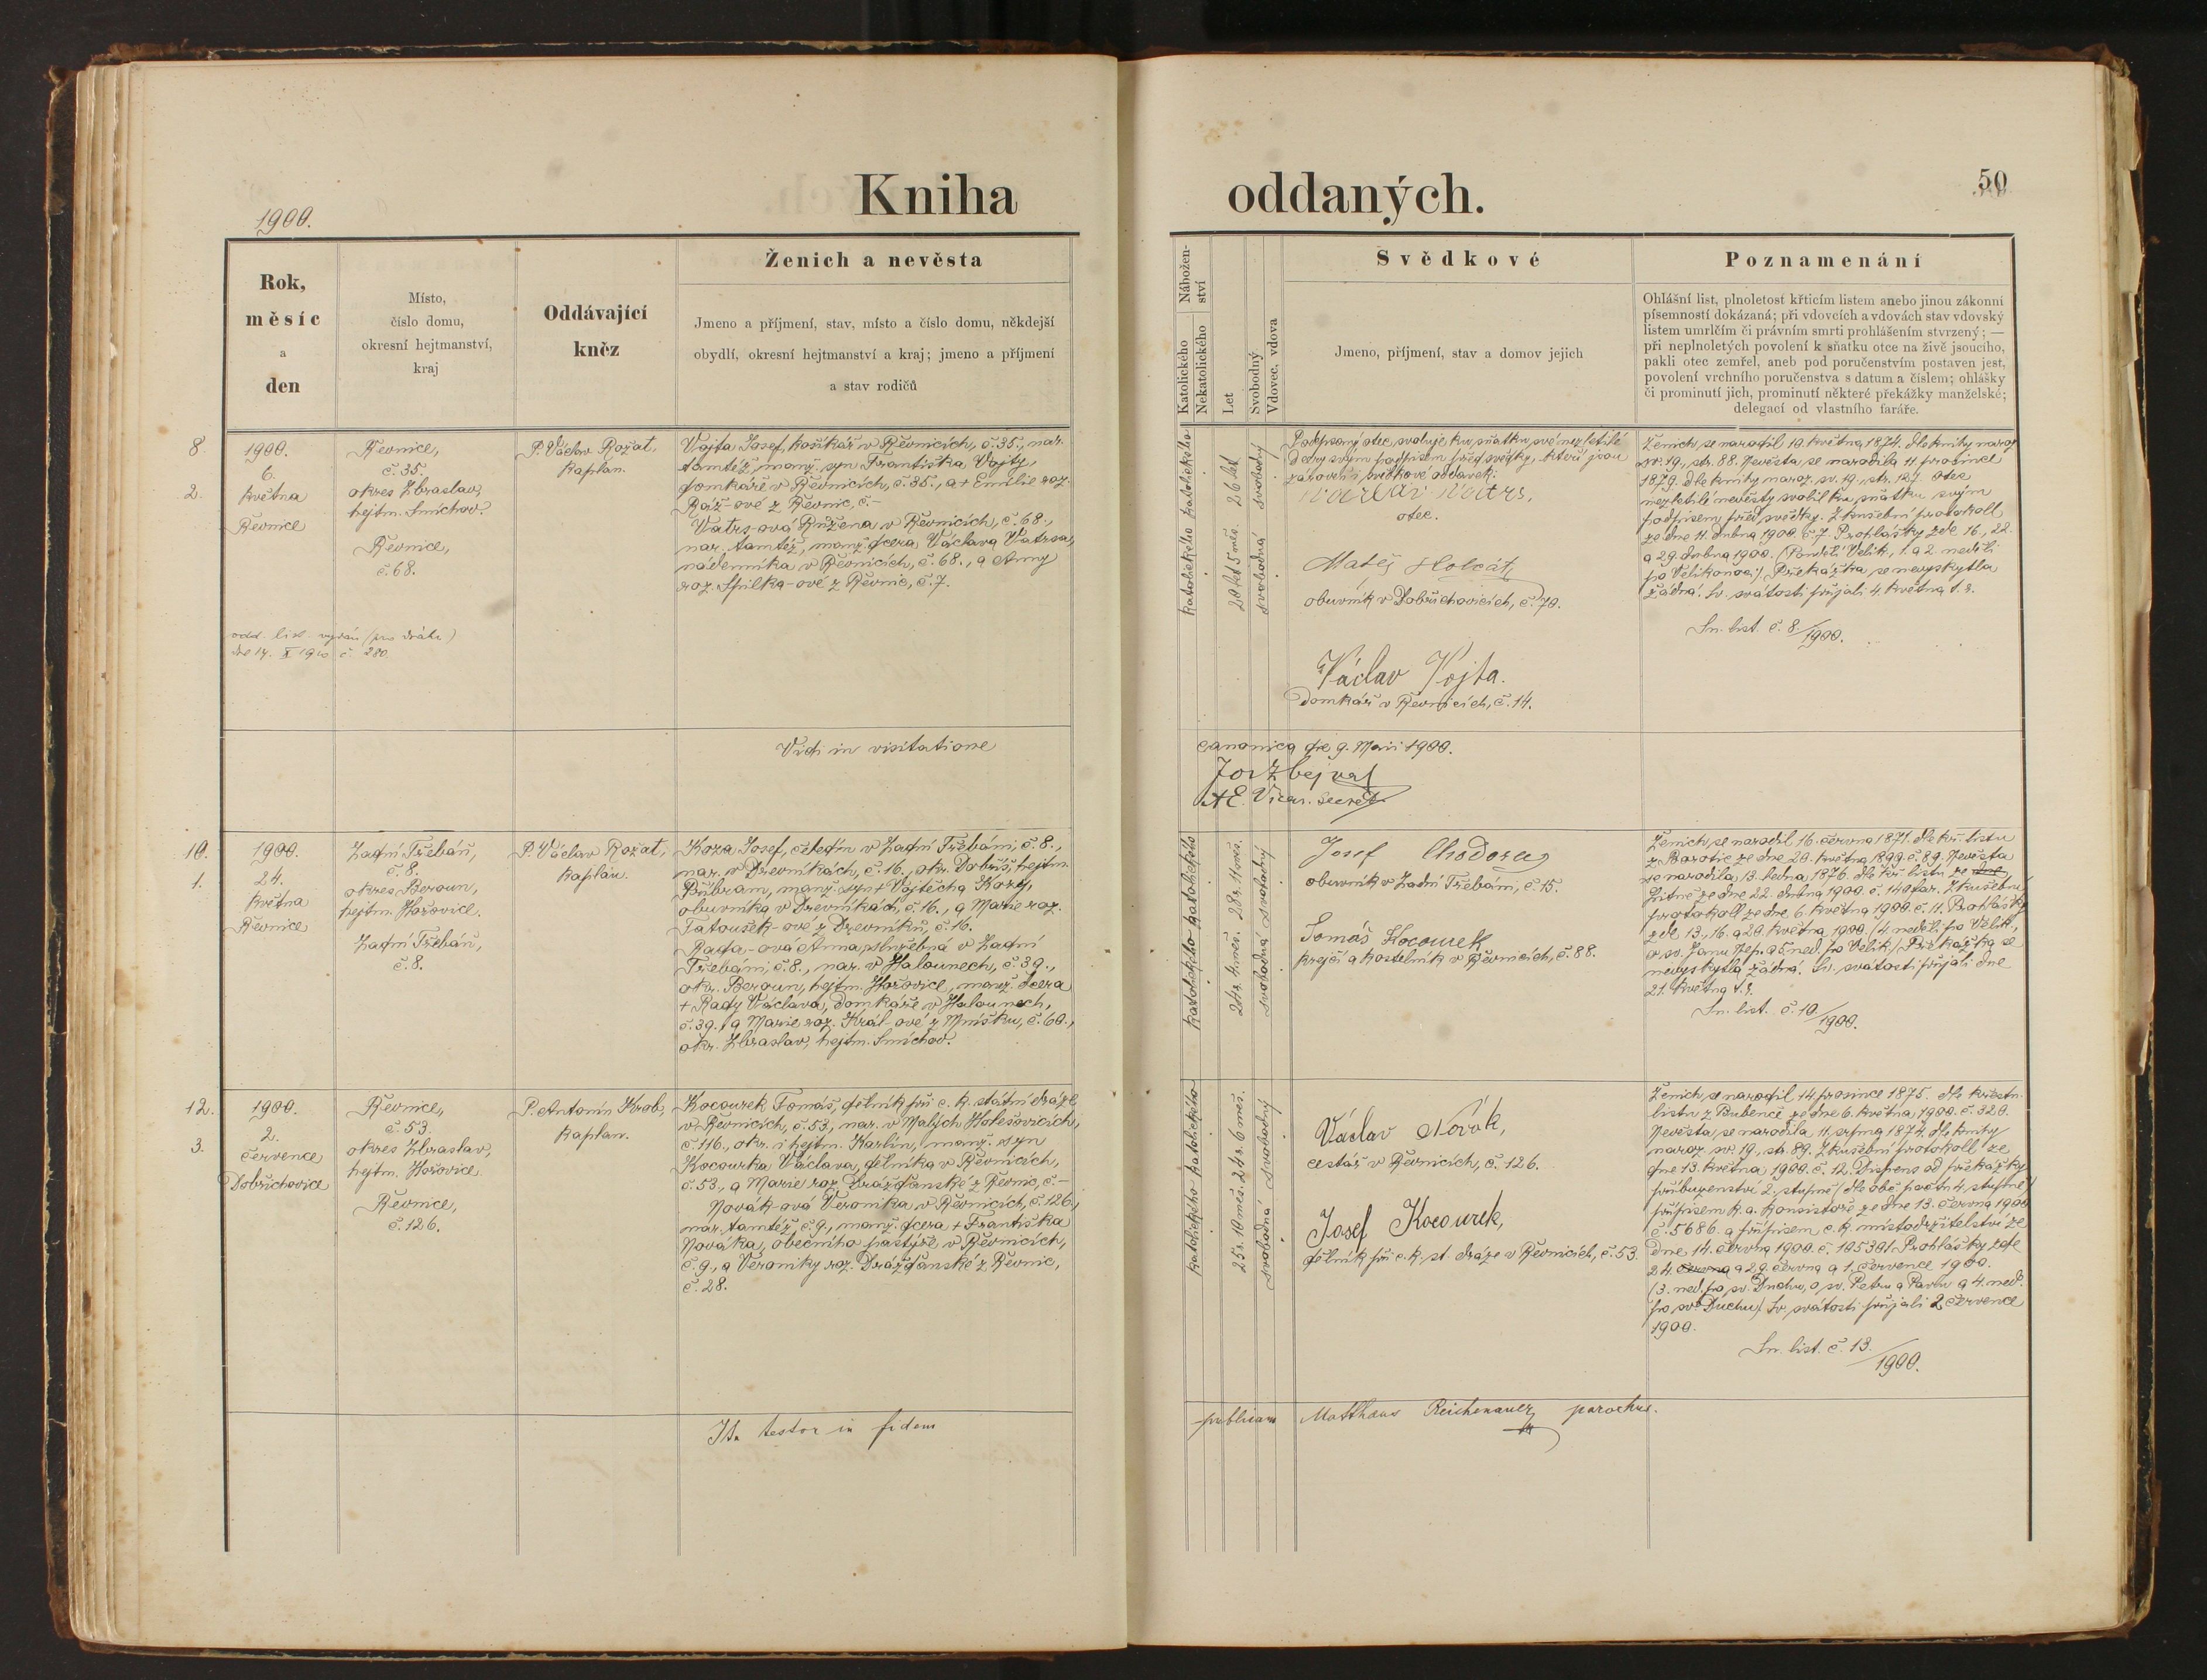 Kniha oddaných.
50
1900.
Rok,
měsíc
a
den
Místo,
číslo domu,
okresní hejtmanství,
kraj
Oddávající
kněz
Ženich a nevěsta
Jmeno a příjmení, stav, místo a číslo domu, někdejší
obydlí, okresní hejtmanství a kraj; jmeno a příjmení
a stav rodičů
Nábožen-
ství
Katolického
Nekatolického
Let
Svobodný
Vdovec, vdova
Svědkové
Jmeno, příjmení, stav a domov jejich
Poznamenání
Ohlášní list, plnoletost křticím listem anebo jinou zákonní
písemností dokázaná; při vdovcích a vdovách stav vdovský
listem umrlčím či právním smrti prohlášením stvrzený; —
při neplnoletých povolení k sňatku otce na živě jsoucího,
pakli otec zemřel, aneb pod poručenstvím postaven jest,
povolení vrchního poručenstva s datum a číslem; ohlášky
či prominutí jich, prominutí některé překážky manželské;
delegací od vlastního faráře.
8.
2.
1900.
6.
května
Řevnice
Řevnice,
č. 35.
okres Zbraslav,
hejtm. Smíchov.
Řevnice,
č. 68.
P. Václav Rožat,
kaplan.
Vojta Josef, košíkář v Řevnicích, č. 35., nar.
tamtéž, manž. syn Františka Vojty,
domkáře v Řevnicích, č. 35., a + Emilie roz.
Ráž-ové z Řevnic, č. –
Vatrs-ová Růžena v Řevnicích, č. 68.,
nar. tamtéž, manž. dcera Václava Vatrsa,
nádenníka v Řevnicích, č. 68., a Anny
roz. Spilka-ové z Řevnic, č. 7.
odd. list vydán (pro dráhu)
dne 17. X 1910 č. 280
katolického katolického
20 let 5 měs. 26 let
svobodná svobodný
Podepsaný otec svoluje ku sňatku své nezletilé
dcery svým podpisem před svědky, kteří jsou
zároveň i svědkové oddavek.
Václav Vatrs,
otec.
Matěj Holcát
obuvník v Dobřichovicích, č. 70.
Václav Vojta.
Domkář v Řevnicích, č. 14.
Ženich se narodil 10. května 1874. dle knihy naroz.
sv. 19., str. 88. Nevěsta se narodila 11. prosince
1879. dle knihy naroz. sv. 19., str. 127. Otec
nezletilé nevěsty svolil ku sňatku svým
podpisem před svědky. Zkušební protokoll
ze dne 11. dubna 1900. č. 7. Prohlášky zde 16., 22.
a 29. dubna 1900. (Pondělí Velik., 1. a 2. neděli
po Velikonoci). Překážka se nevyskytla
žádná. Sv. svátosti přijali 4. května t. r.
Sn. list. č. 8./1900.
Vidi in visitatione canonica die 9. Maii 1900.
Jos. Zbejval
AE. Vicar. Secret.
10.
1.
1900.
24.
května
Řevnice
Zadní Třebáň,
č. 8.
okres Beroun,
hejtm. Hořovice.
Zadní Třebáň,
č. 8.
P. Václav Rožat,
kaplan.
Koza Josef, čeledín v Zadní Třebáni, č. 8.,
nar. v Drevníkách, č. 16., okr. Dobříš, hejtm.
Příbram, manž. syn + Vojtěcha Kozy,
obuvníka v Drevníkách, č. 16., a Marie roz.
Tatoušek-ové z Drevníků, č. 16.
Rada-ová Anna, služebná v Zadní
Třebáni, č. 8., nar. v Halounech, č. 39.,
okr. Beroun, hejtm. Hořovice, manž. dcera
+ Rady Václava, domkáře v Halounech,
č. 39., a Marie roz. Král-ové z Mníšku, č. 60.,
okr. Zbraslav, hejtm. Smíchov.
katolického katolického
24 r. 4 měs. 28 r. 11 měs.
svobodná svobodný
Josef Chodora
obuvník v Zadní Třebáni, č. 15.
Tomáš Kocourek
krejčí a kostelník v Řevnicích, č. 88.
Ženich se narodil 16. června 1871. dle kř. listu
z Borotic ze dne 20. května 1899. č. 89. Nevěsta
se narodila 13. ledna 1876. dle kř. listu ze dne
Litně ze dne 22. dubna 1900. č. 140 far. Zkušební
protokoll ze dne 6. května 1900. č. 11. Prohlášky
zde 13., 16. a 20. května 1900. (4. neděli po Velik.,
o sv. Janu Nep. a 5. ned. po Velik.) Překážka se
nevyskytla žádná. Sv. svátosti přijali dne
21. května t. r.
Sn. list. č. 10/1900.
12.
3.
1900.
2.
července
Dobřichovice
Řevnice,
č. 53.
okres Zbraslav,
hejtm. Hořovice
Řevnice,
č. 126.
P. Antonín Krob,
kaplan.
Kocourek Tomáš, dělník při c. k. státní dráze
v Řevnicích, č. 53., nar. v Malých Holešovicích,
č. 116., okr. i hejtm. Karlín, manž. syn
Kocourka Václava, dělníka v Řevnicích,
č. 53., a Marie roz. Drážďanské z Řevnic, č. –
Novák-ová Veronika v Řevnicích, č. 126.,
nar. tamtéž, č. 9., manž. dcera + Františka
Nováka, obecního pastýře v Řevnicích,
č. 9., a Veroniky roz. Drážďanské z Řevnic,
č. 28.
katolického katolického
25 r. 10 měs. 24 r. 6 měs.
svobodná svobodný
Václav Novák,
cestář v Řevnicích, č. 126.
Josef Kocourek,
dělník při c. k. st. dráze v Řevnicích, č. 53.
Ženich se narodil 14. prosince 1875. dle křestn.
listu z Bubenče ze dne 6. května 1900. č. 320.
Nevěsta se narodila 11. srpna 1874. dle knihy
naroz. sv. 19., str. 89. Zkušební protokoll ze
dne 13. května 1900. č. 12. Dispens od překážky
příbuzenství 2. stupně (dle obč. počtu 4. stupně)
přípisem k. a. konsistoře ze dne 13. června 1900
č. 5686. a přípisem c. k. místodržitelství ze
dne 14. června 1900. č. 105301. Prohlášky zde
24. června a 29. června a 1. července 1900.
(3. ned. po sv. Duchu, o sv. Petru a Pavlu a 4. ned.
po sv. Duchu). Sv. svátosti přijali 2 července
1900.
Sn. list. č. 13./1900.
Ita testor in fidem publicam Matthäus Reichenauer parochus.